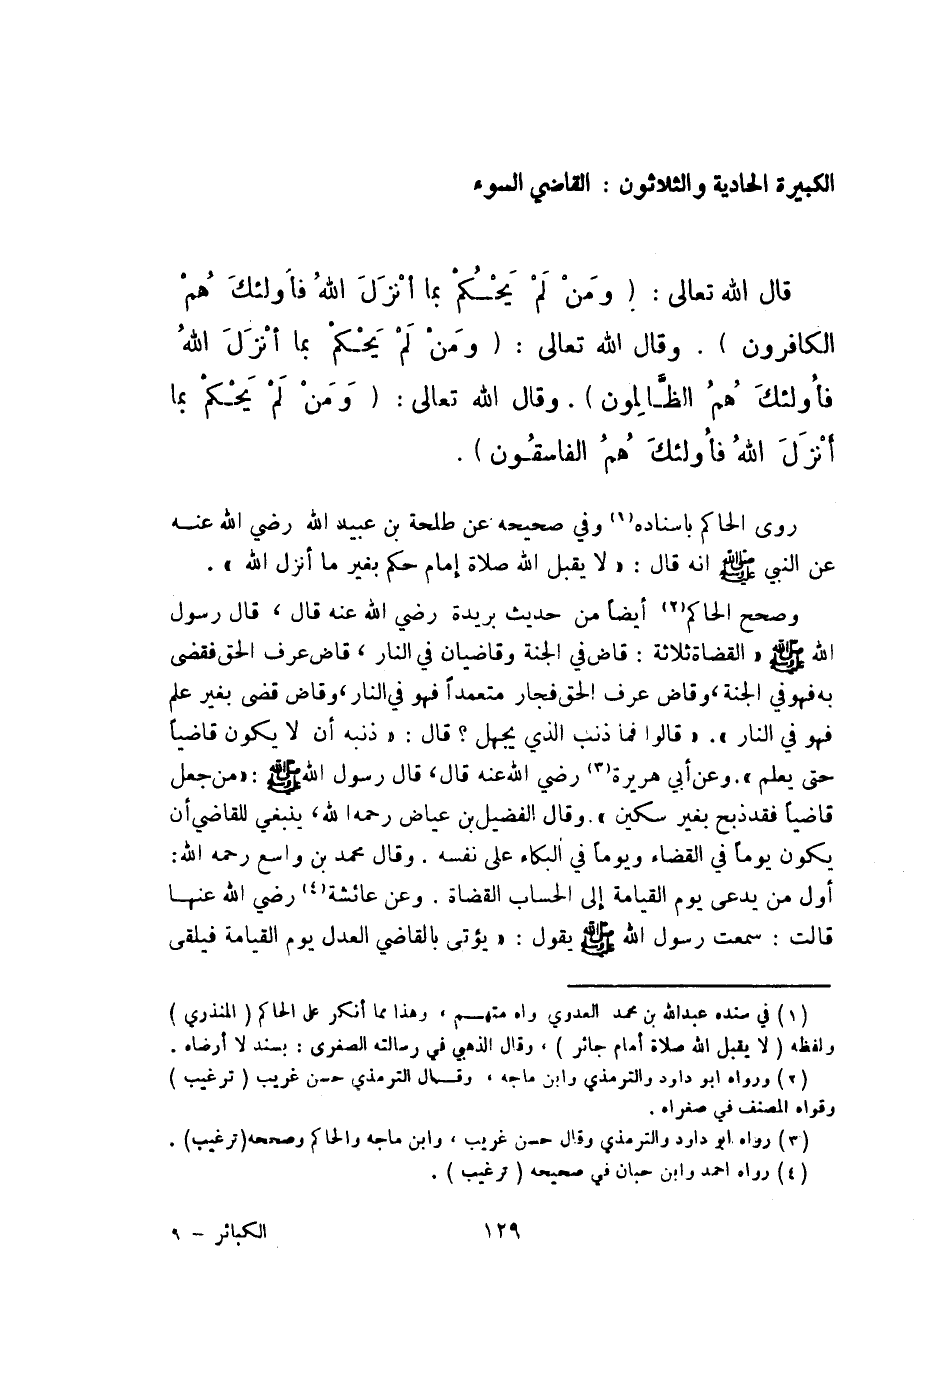 الكبيرة الحادية والثلاثون : القاضي السوء
قال الله تعالى : ( ومَنْ لَمْ يَحْكُمْ بما أنْزَلَ اللهُ فأولئكَ هُمْ
الكافرون ) . وقال الله تعالى : ( ومَنْ لَمْ يَحْكمْ بما أنْزَلَ اللهُ
فأُولئكَ هُمُ الظَّالِمون ) . وقال الله تعالى : ( وَمَنْ لَمْ يَحْكمْ بما
أنْزَلَ اللهُ فأُولئكَ هُمُ الفاسقُون ) .
روى الحاكم باسناده(١) وفي صحيحه عن طلحة بن عبيد الله رضي الله عنه
عن النبي ﷺ انه قال : « لا يقبل الله صلاة إمام حكم بغير ما أنزل الله » .
وصحح الحاكم(٢) أيضاً من حديث بريدة رضي الله عنه قال ، قال رسول
الله ﷺ « القضاة ثلاثة : قاض في الجنة وقاضيان في النار ، قاض عرف الحق فقضى
به فهو في الجنة ، وقاض عرف الحق فجار متعمداً فهو في النار ، وقاض قضى بغير علم
فهو في النار » . « قالوا فما ذنب الذي يجهل ؟ قال : « ذنبه أن لا يكون قاضياً
حتى يعلم » . وعن أبي هريرة(٣) رضي الله عنه قال ، قال رسول الله ﷺ : « من جعل
قاضياً فقد ذبح بغير سكين » . وقال الفضيل بن عياض رحمه الله ، ينبغي للقاضي أن
يكون يوماً في القضاء ويوماً في البكاء على نفسه . وقال محمد بن واسع رحمه الله :
أول من يدعى يوم القيامة إلى الحساب القضاة . وعن عائشة(٤) رضي الله عنها
قالت : سمعت رسول الله ﷺ يقول : « يؤتى بالقاضي العدل يوم القيامة فيلقى
(١) في سنده عبدالله بن محمد العدوي واه متهم ، وهذا مما أنكر على الحاكم ( المنذري )
ولفظه ( لا يقبل الله صلاة أمام جائر ) ، وقال الذهبي في رسالته الصغرى : بسند لا أرضاه .
(٢) ورواه ابو داود والترمذي وابن ماجه ، وقال الترمذي حسن غريب ( ترغيب )
وقواه المصنف في صغراه .
(٣) رواه ابو داود والترمذي وقال حسن غريب ، وابن ماجه والحاكم وصححه (ترغيب) .
(٤) رواه احمد وابن حبان في صحيحه ( ترغيب ) .
١٢٩
الكبائر – ٩